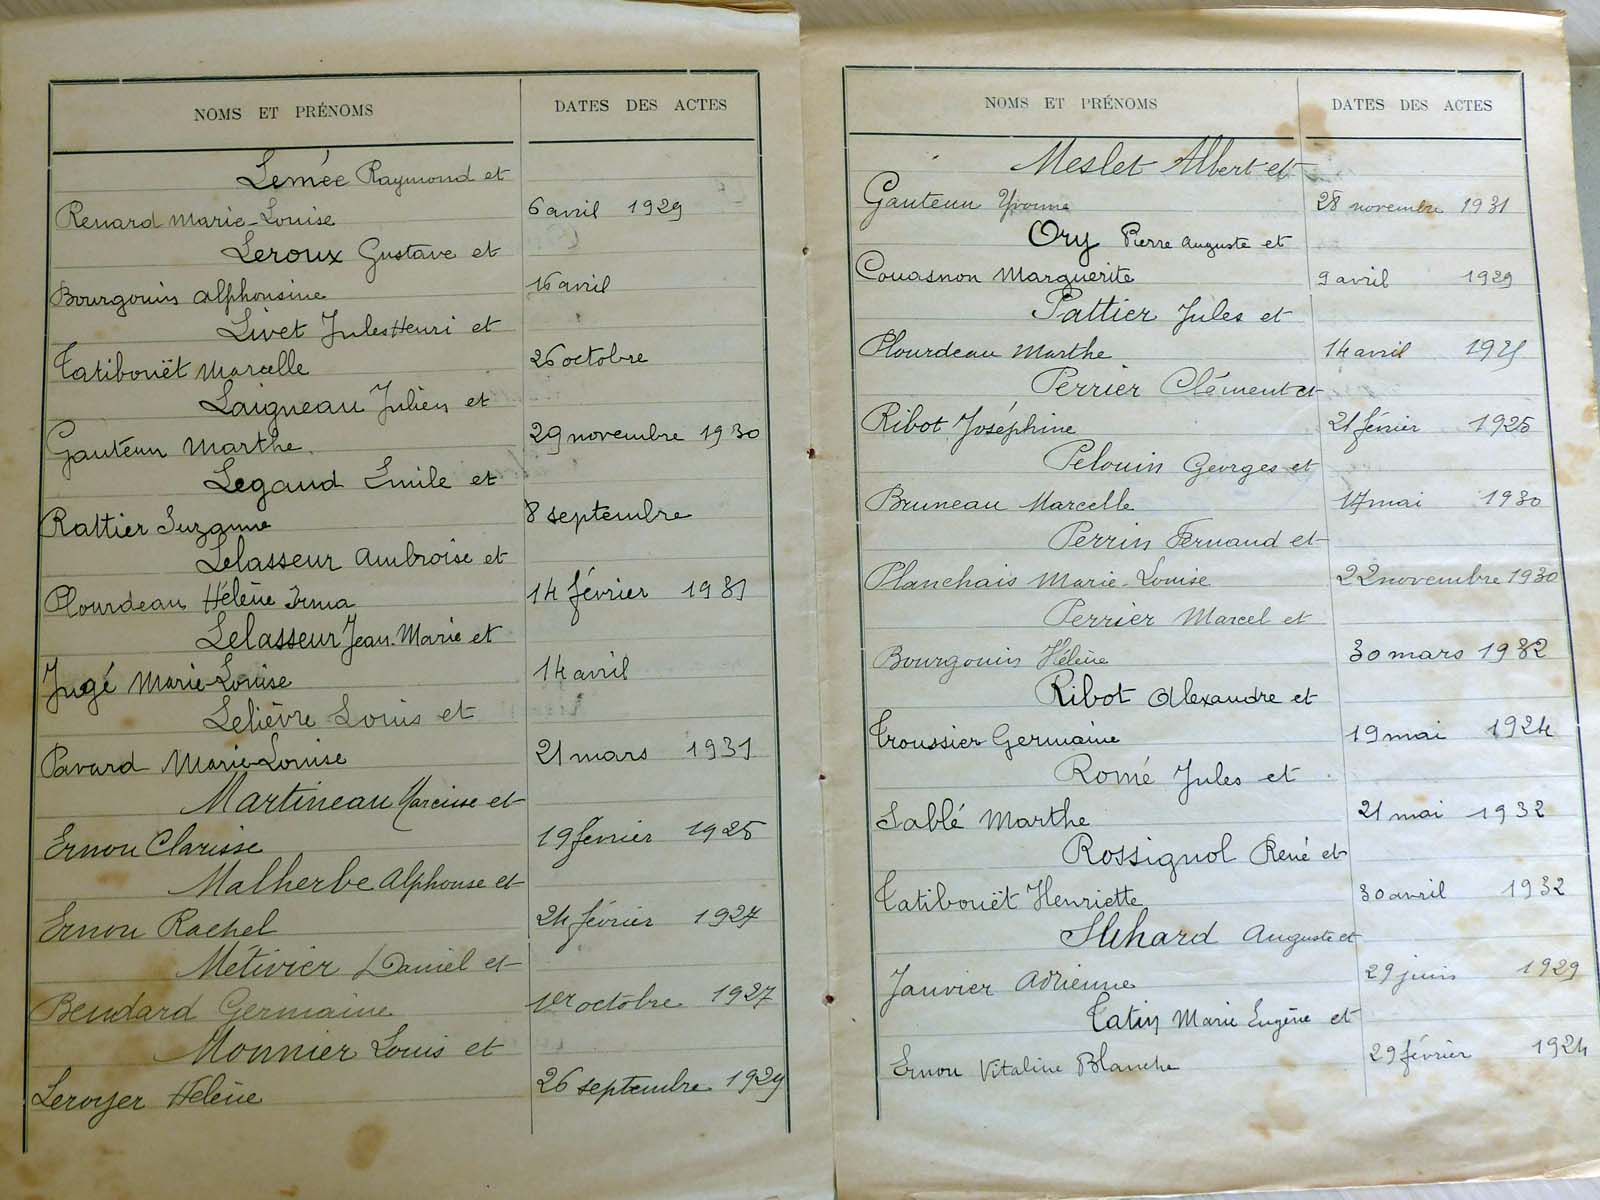 NOMS ET PRÉNOMS DATES DES ACTES
Lemée Raymond et
Renard Marie-Louise 6 avril 1929
Leroux Gustave et
Bourgouin Alphonsine 16 avril
Livet Jules Henri et
Tatibouët Marcelle 26 octobre
Laigneau Julien et
Gauteun Marthe 29 novembre 1930
Legaud Emile et
Rattier Suzanne 8 septembre
Lelasseur Ambroise et
Plourdeau Hélène Irma 14 février 1931
Lelasseur Jean-Marie et
Jugé Marie-Louise 14 avril
Lelièvre Louis et
Pavard Marie-Louise 21 mars 1931
Martineau Narcisse et
Ernou Clarisse 19 février 1925
Malherbe Alphonse et
Ernou Rachel 24 février 1927
Métivier Daniel et
Beudard Germaine 1er octobre 1927
Monnier Louis et
Leroyer Hélène 26 septembre 1929
NOMS ET PRÉNOMS DATES DES ACTES
Meslet Albert et
Gauteun Yvonne 28 novembre 1931
Ory Pierre Auguste et
Couasnon Marguerite 9 avril 1929
Pattier Jules et
Plourdeau Marthe 14 avril
Perrier Clément et
Ribot Joséphine 21 février 1925
Pelouin Georges et
Bruneau Marcelle 17 mai 1930
Perrin Fernand et
Planchais Marie-Louise 22 novembre 1930
Perrier Marcel et
Bourgouin Hélène 30 mars 1932
Ribot Alexandre et
Troussier Germaine 19 mai 1924
Romé Jules et
Sablé Marthe 21 mai 1932
Rossignol René et
Tatibouët Henriette 30 avril 1932
Auguste et
Janvier Adrienne 29 juin 1929
Tatin Marie Eugène et
Ernou Vitaline Blanche 29 février 1924